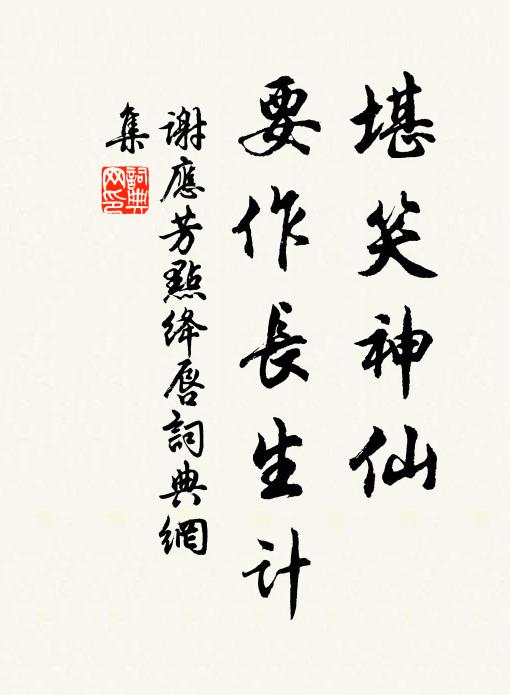 堪笑神仙
要作長生計
謝應芳點絳唇詞典網
集
詞典網印